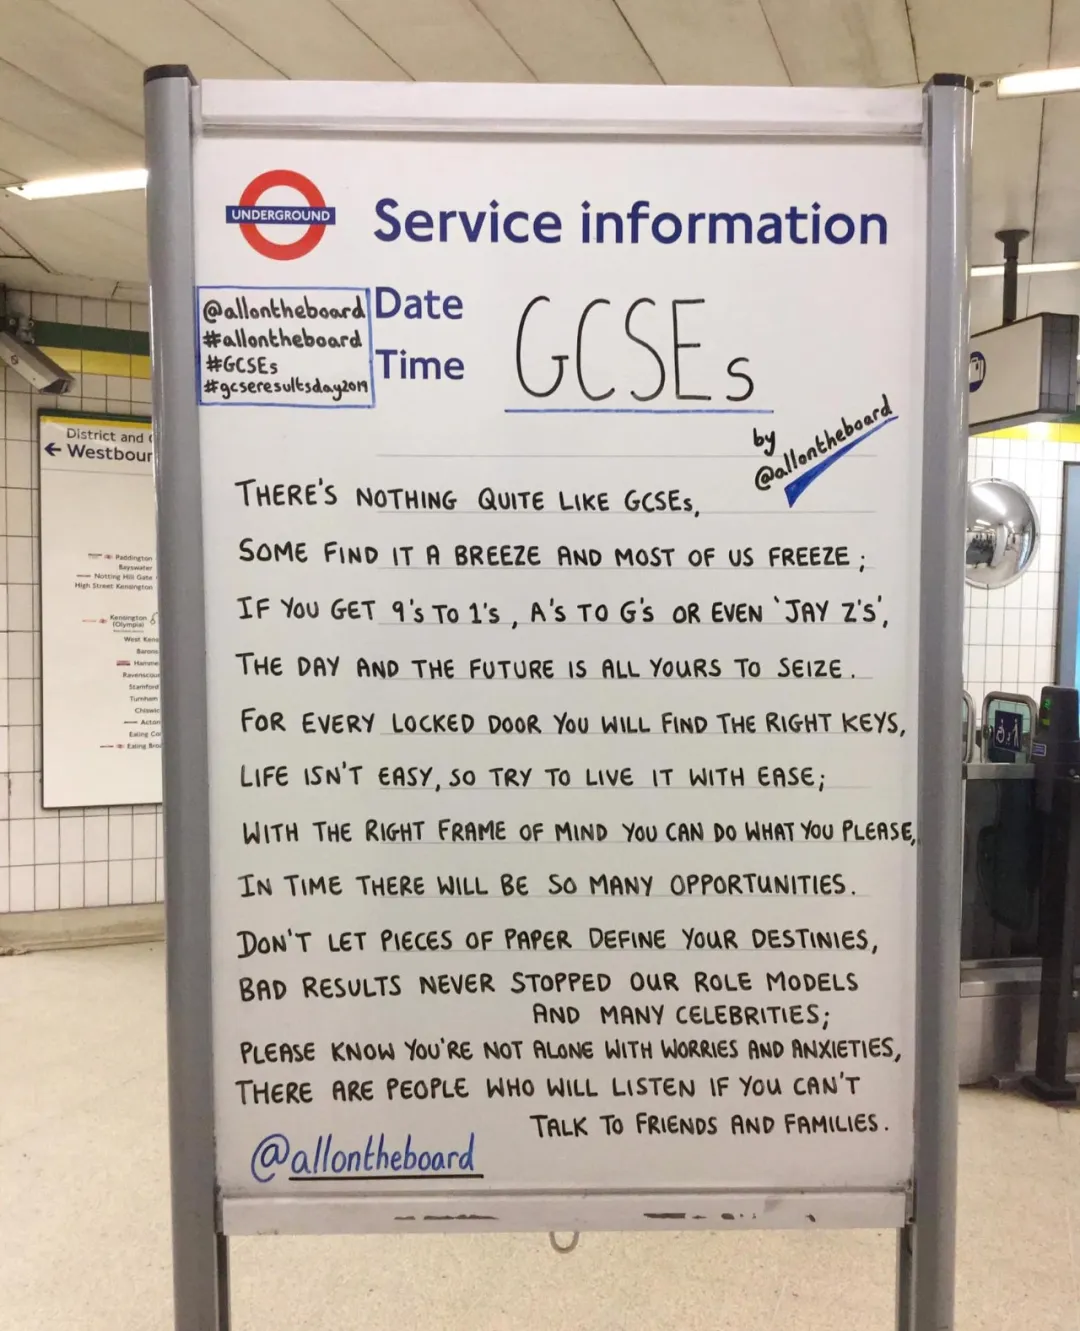 UNDERGROUND
Service information
@allontheboard
#allontheboard
#GCSEs
#gcseresultsday2019
Date
Time
GCSEs
by
@allontheboard
THERE'S NOTHING QUITE LIKE GCSEs,
SOME FIND IT A BREEZE AND MOST OF US FREEZE;
IF YOU GET 9'S TO 1'S, A'S TO G'S OR EVEN 'JAY Z'S',
THE DAY AND THE FUTURE IS ALL YOURS TO SEIZE.
FOR EVERY LOCKED DOOR YOU WILL FIND THE RIGHT KEYS,
LIFE ISN'T EASY, SO TRY TO LIVE IT WITH EASE;
WITH THE RIGHT FRAME OF MIND YOU CAN DO WHAT YOU PLEASE,
IN TIME THERE WILL BE SO MANY OPPORTUNITIES.
DON'T LET PIECES OF PAPER DEFINE YOUR DESTINIES,
BAD RESULTS NEVER STOPPED OUR ROLE MODELS
AND MANY CELEBRITIES;
PLEASE KNOW YOU'RE NOT ALONE WITH WORRIES AND ANXIETIES,
THERE ARE PEOPLE WHO WILL LISTEN IF YOU CAN'T
TALK TO FRIENDS AND FAMILIES.
@allontheboard
District and
← Westbour
Paddington
Bayswater
Notting Hill Gate
High Street Kensington
Kensington
(Olympia)
West Kens
Barons
Hamme
Ravenscou
Stamford
Turnham
Chiswi
Acton
Ealing Co
Ealing Bro